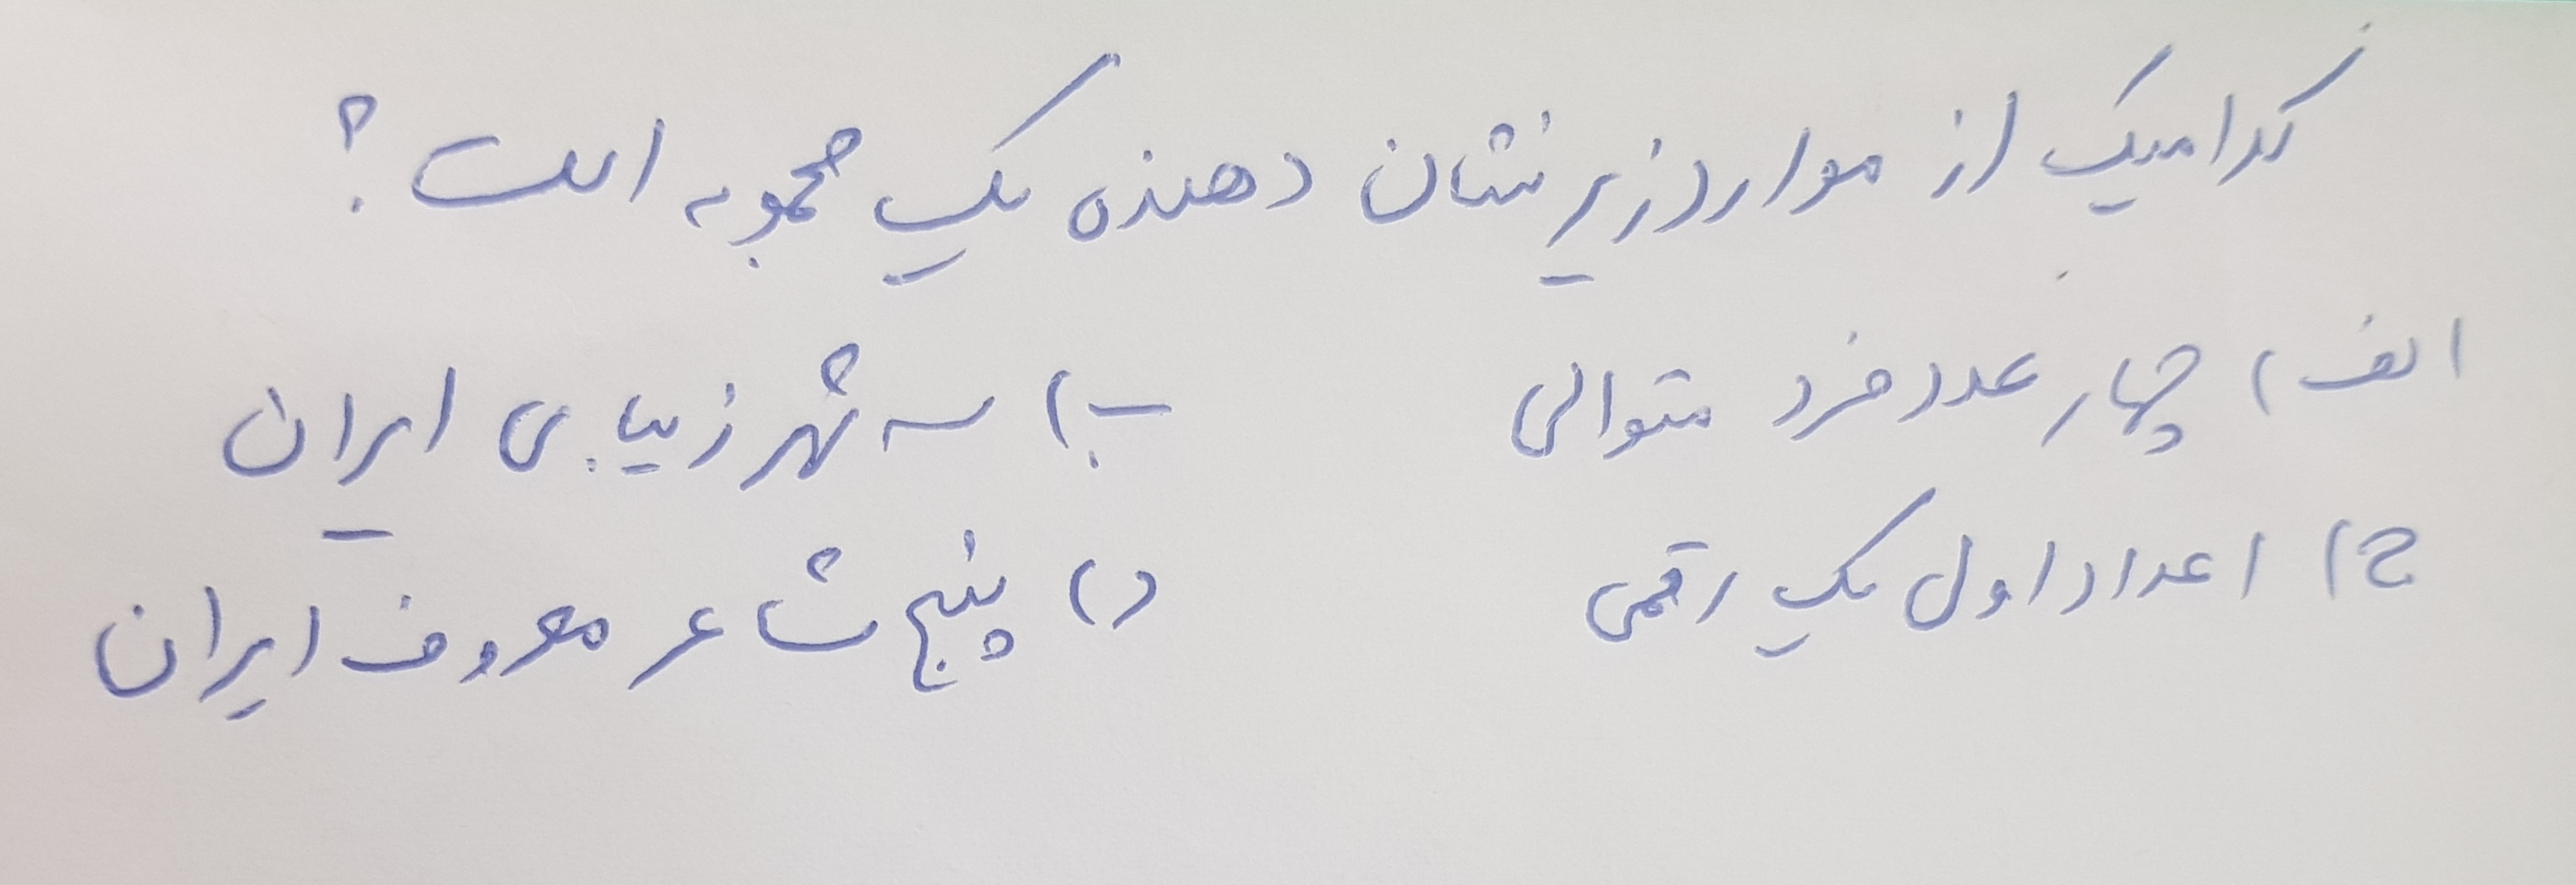 کدامیک از موارد زیر نشان دهنده یک مجموعه است؟
الف) چهار عدد فرد متوالی ب) سه شهر زیبای ایران
ج) اعداد اول یک رقمی د) پنج شاعر معروف ایران